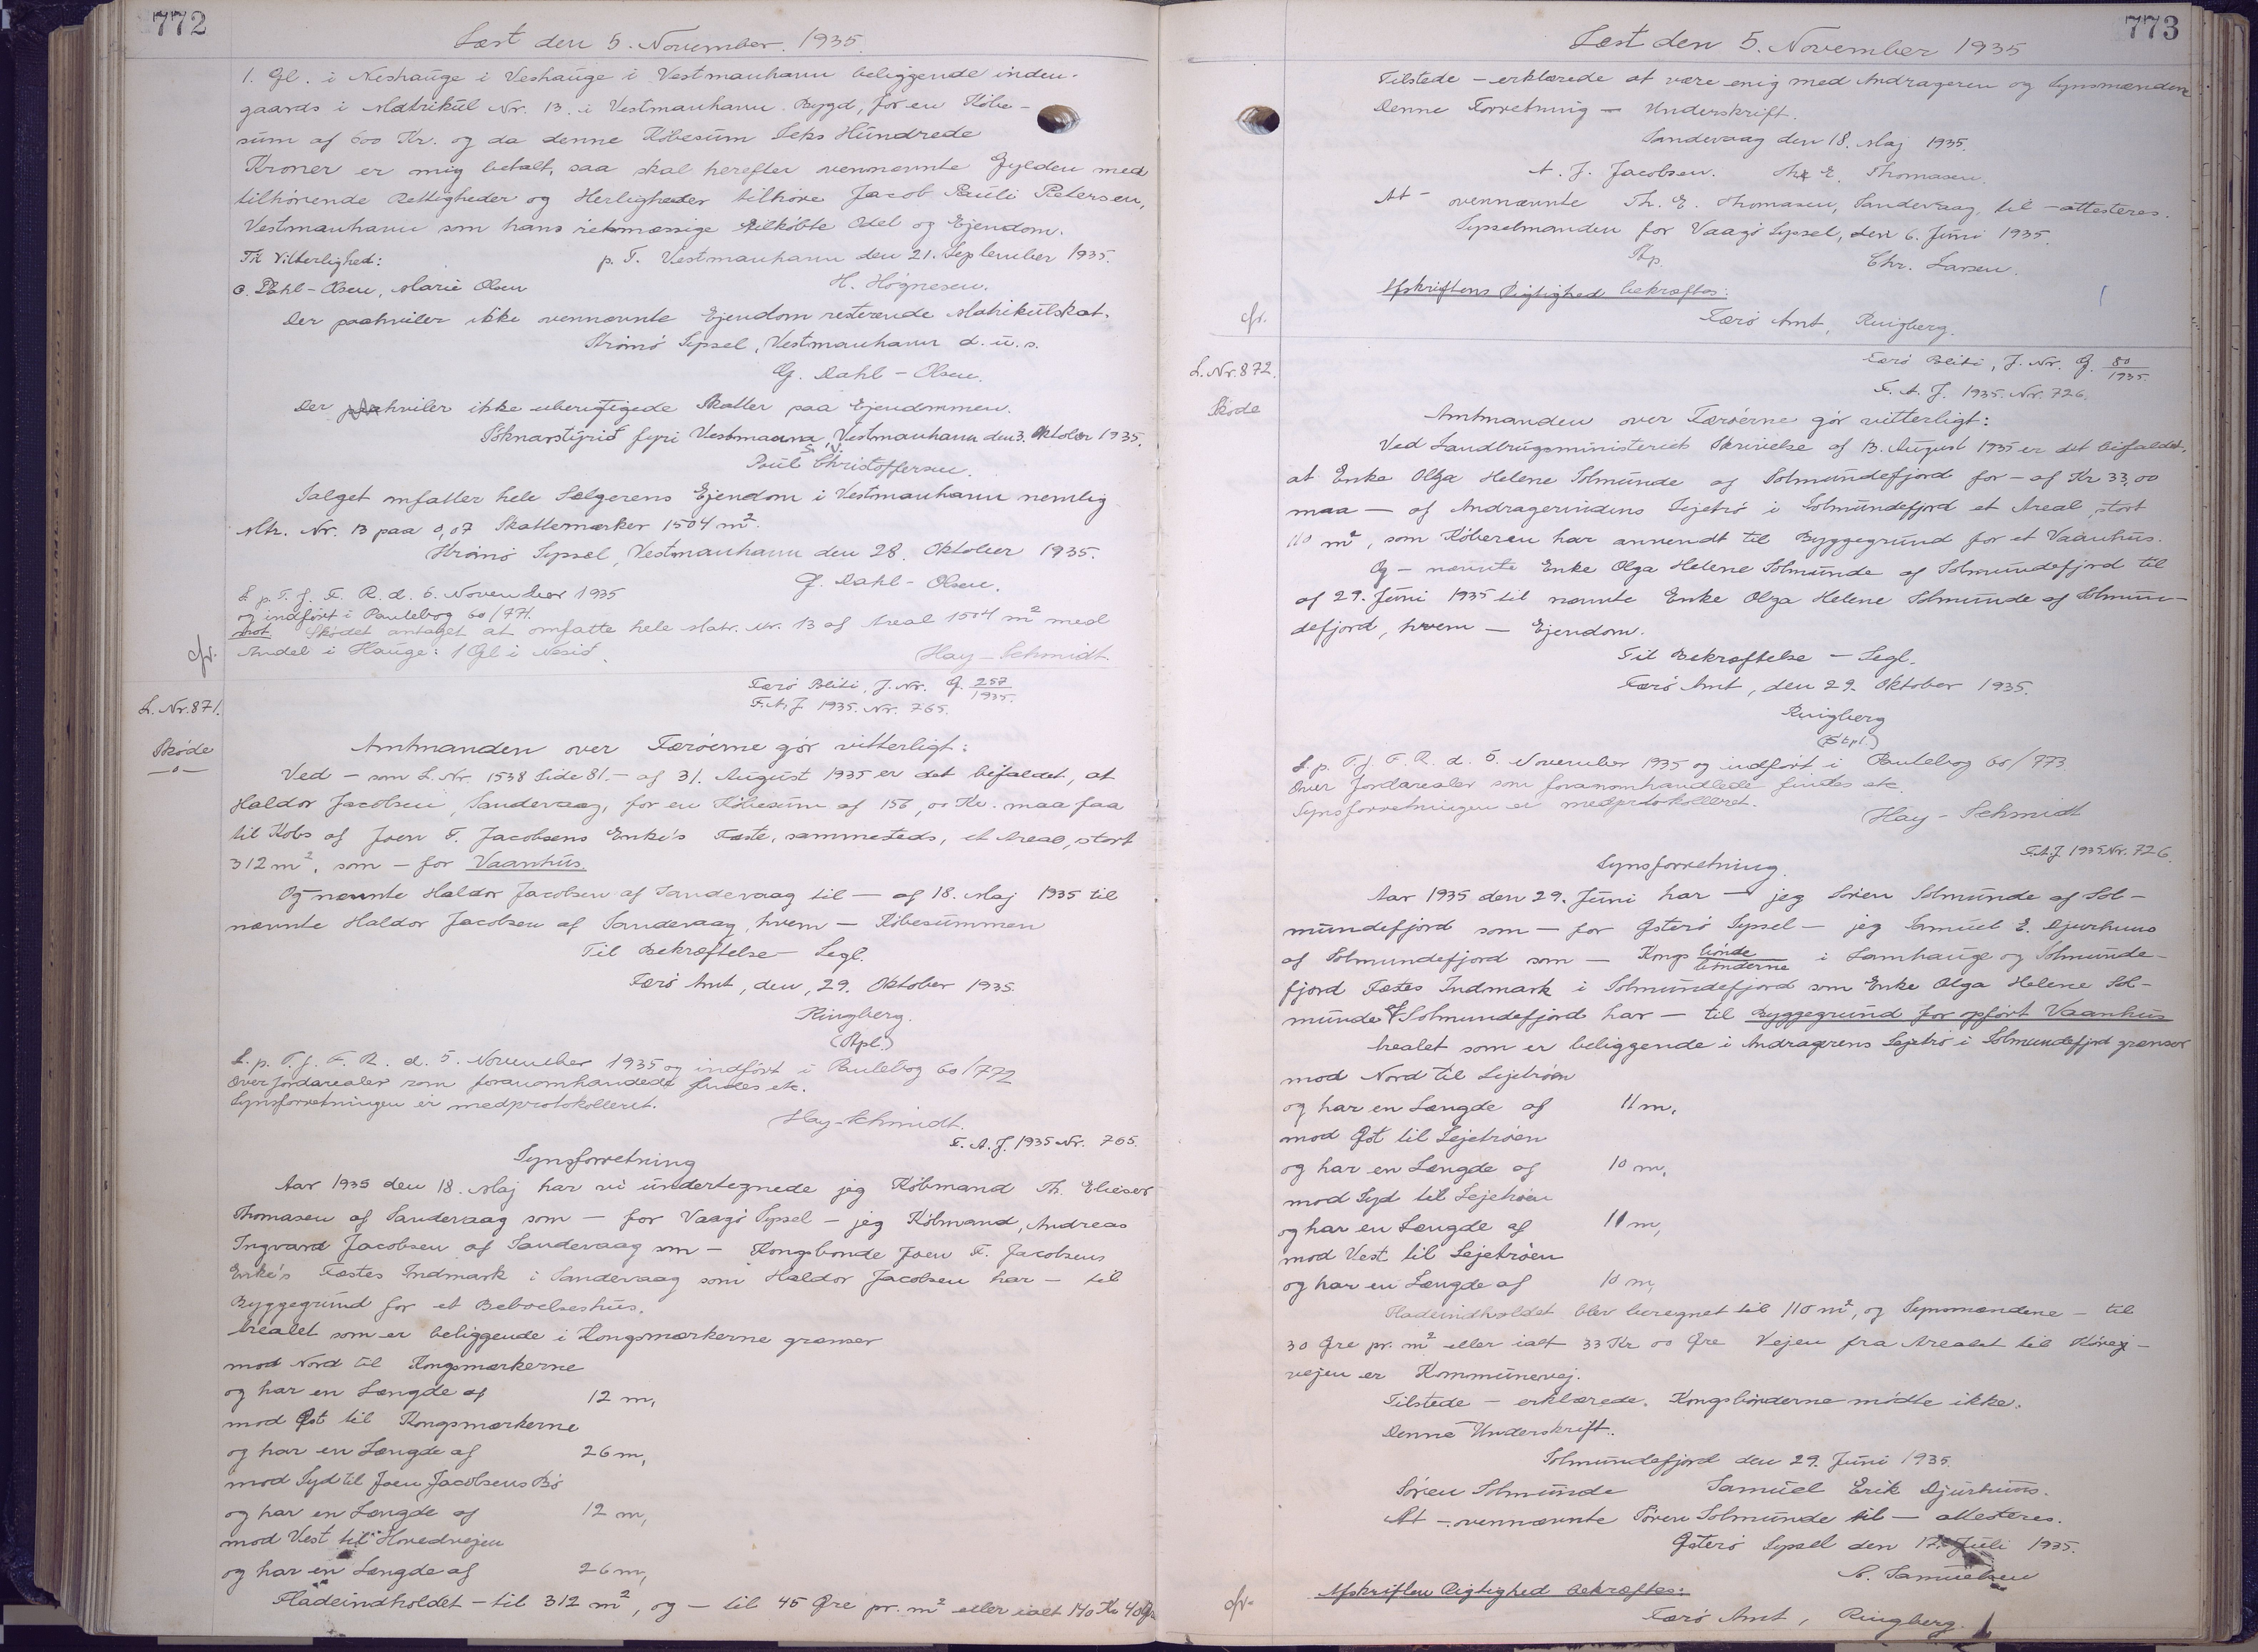 772
Læst den 5. November. 1935.
1. Gl. i Neshauge i Veshauge i Vestmanhavn beliggende inden-
gaards i Matrikul Nr. 13. i Vestmanhavn Bygd, for en Købe-
sum af 600 Kr. og da denne Købesum Seks Hundrede
Kroner er mig betalt, saa skal herefter ovennævnte Gylden med
tilhörende Rettigheder og Herligheder tilhöre Jacob Pauli Petersen,
Vestmanhavn som hans retmæssige tilköbte Odel og Ejendom.
Til Vitterlighed: p. T. Vestmanhavn den 21. September 1935.
G. Dahl-Olsen, Marie Olsen H. Högnesen.
Der paahviler ikke ovennævnte Ejendom resterende Matrikulskat.
Strömö Syssel, Vestmanhavn d. u. s.
G. Dahl-Olsen.
Der paahviler ikke uberigtigede Skatter paa Ejendommen.
Sóknarstýrið fyri Vestmanna, Vestmanhavn den 3. Oktober 1935.
Poul S. Christoffersen.
Salget omfatter hele Sælgerens Ejendom i Vestmanhavn nemlig
Mtr. Nr. 13 paa 0,07 Skattemarker 1504 m².
Strömö Syssel, Vestmanhavn den 28. Oktober 1935.
G. Dahl-Olsen.
L. p. T. f. F. R. d. 5. November 1935
og indført i Pantebog 60/771.
Not. Skødet antaget at omfatte hele Matr. Nr. 13 af Areal 1504 m² med
Andel i Hauge: 1 Gl i Nesið.
Hay-Schmidt.
cfr.
L. Nr. 871.
Skøde
Færö Beliti, J. Nr. G. 257/1935.
F.A.J. 1935. Nr. 765.
Amtmanden over Færöerne gör vitterligt:
Ved — som L. Nr. 1538 Side 81. — af 31. August 1935 er det bifaldet, at
Haldor Jacobsen, Sandevaag, for en Köbesum af 156,00 Kr. maa faa
til Köbs af Joen F. Jacobsens Enke's Fæste, sammesteds, et Areal, stort
312 m², som — for Vaanhus.
Og nævnte Haldor Jacobsen af Sandevaag til — af 18. Maj 1935 til
nævnte Haldor Jacobsen af Sandevaag, hvem — Köbesummen
Til Bekræftelse — Segl.
Færö Amt, den, 29. Oktober 1935.
Ringberg.
(Stpl.)
L. p. T. f. F. R. d. 5. November 1935 og indført i Pantebog 60/772
Over Jordarealer som foranomhandlede findes etc.
Synsforretningen er medprotokolleret.
Hay-Schmidt.
F. A. J. 1935 Nr. 765.
Synsforretning
Aar 1935 den 18. Maj har vi undertegnede jeg Købmand Th. Elieser
Thomasen af Sandevaag som — for Vaagö Syssel — jeg Købmand, Andreas
Ingvard Jacobsen af Sandevaag som — Kongsbonde Joen F. Jacobsens
Enke's Fæstes Indmark i Sandevaag som Haldor Jacobsen har — til
Byggegrund for et Beboelseshus.
Arealet som er beliggende i Kongsmarkerne grænser
mod Nord til Kongsmarkerne
og har en Længde af 12 m,
mod Øst til Kongsmarkerne
og har en Længde af 26 m,
mod Syd til Joen Jacobsens Bö
og har en Længde af 12 m,
mod Vest til Hovedvejen
og har en Længde af 26 m,
Fladeindholdet — til 312 m², og — til 45 Øre pr. m² eller ialt 140 Kr 40 Øre
773
Læst den 5. November 1935
Tilstede — erklærede at være enig med Andrageren og Synsmændene
Denne Forretning — Underskrift.
Sandevaag den 18. Maj 1935.
A. J. Jacobsen. Th. E. Thomasen.
At — ovennævnte Th. E. Thomasen, Sandevaag, til — attesteres.
Sysselmanden for Vaagö Syssel, den 6. Juni 1935.
Chr. Larsen.
Afskriftens Rigtighed bekræftes:
cfr. Færö Amt, Ringberg.
L. Nr. 872.
Skøde
Færö Beliti, J. Nr. G. 80/1935.
F. A. J. 1935. Nr. 726.
Amtmanden over Færöerne gör vitterligt:
Ved Landbrugsministeriets Skrivelse af 13. August 1935 er det bifaldet,
at Enke Olga Helene Solmunde af Solmundefjord for — af Kr. 33,00
maa — af Andragerindens Lejetrö i Solmundefjord et Areal stort
110 m², som Köberen har anvendt til Byggegrund for et Vaanhus.
Og — nævnte Enke Olga Helene Solmunde af Solmundefjord til
af 29. Juni 1935 til nævnte Enke Olga Helene Solmunde af Solmun-
defjord, hvem — Ejendom.
Til Bekræftelse — Segl.
Færö Amt, den 29. Oktober 1935.
Ringberg
(Stpl.)
L. p. T. f. F. R. d. 5. November 1935 og indført i Pantebog 60/773.
Over Jordarealer som foranomhandlede findes etc.
Synsforretningen er medprotokolleret.
Hay-Schmidt
F.A.J. 1935 Nr. 726.
Synsforretning.
Aar 1935 den 29. Juni har — jeg Sören Solmunde af Sol-
mundefjord som — for Østerö Syssel — jeg Samuel E. Djurhuus
af Solmundefjord som — Kongs bönde/bönderne i Lamhauge og Solmunde-
fjord Fæstes Indmark i Solmundefjord som Enke Olga Helene Sol-
munde af Solmundefjord har — til Byggegrund for opfört Vaanhus
Arealet som er beliggende i Andragerens Lejetrö i Solmundefjord grænser
mod Nord til Lejetröen
og har en Længde af 11 m,
mod Øst til Lejetröen
og har en Længde af 10 m,
mod Syd til Lejetröen
og har en Længde af 11 m,
mod Vest til Lejetröen
og har en Længde af 10 m,
Fladeindholdet blev beregnet til 110 m², og Synsmændene — til
30 Øre pr. m² eller ialt 33 Kr 00 Øre Vejen fra Arealet til Körej-
vejen er Kommunevej.
Tilstede — erklærede. Kongsbönderne mödte ikke.
Denne — Underskrift.
Solmundefjord den 29. Juni 1935.
Sören Solmunde Samuel Erik Djurhuus.
At — ovennævnte Sören Solmunde til — attesteres.
Østerö Syssel den 17. Juli 1935.
Samuelsen
Afskriften Rigtighed bekræftes:
cfr. Færö Amt, Ringberg.